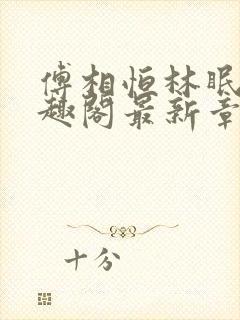 傅相恒林眠
趣阁最新章
十分